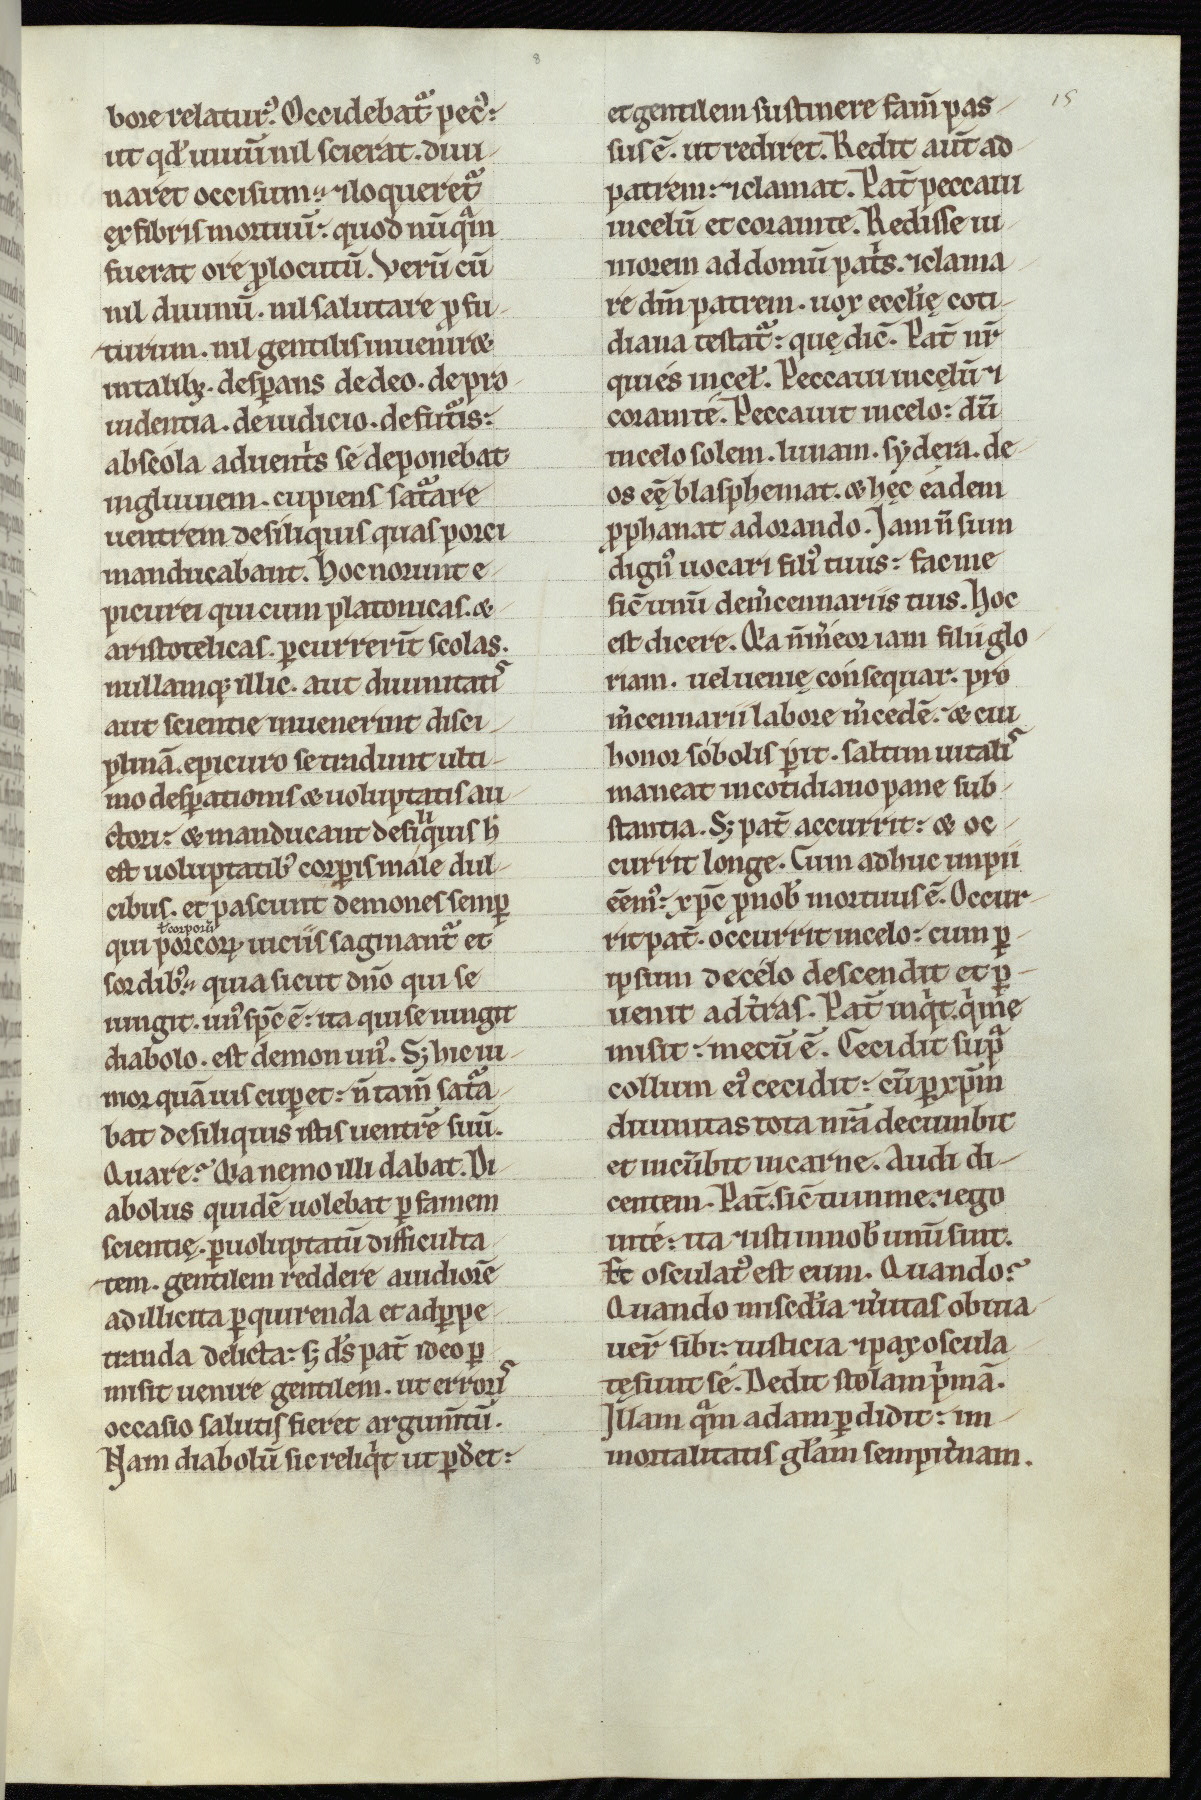 8
15
bore relatur᷒. Occidebat᷑ pec᷒:
ut qd̕ uiuū nil scierat. diui
naret occisum. ⁊ loqueret᷑
ex fibris mortuū. quod nūq̄m
fuerat ore ꝓlocutū. Verū cū
nil diuinū. nil salutare ꝓfu
turum. nil gentilis inuenir&
in talibꝫ. desꝑans de deo. de pro
uidentia. de iudicio. de fut᷑is:
ab scola aduent̕s se deponebat
ingluuiem. cupiens sat᷑are
uentrem de siliquis quas porci
manducabant. Hoc norunt e
picurei qui cum platonicas. &
aristotelicas. ꝑcurrerīt scolas.
nullamqꝫ illic. aut diuinitatiˢ
aut scientie inuenerint disci
plinā. epicuro se tradunt ulti
mo desꝑationis & uoluptatis au
ctori: & manducant de siliquis h̄
est uoluptatib᷒ corꝑis male dul
cibus. et pascunt demones semꝑ
ł corporū
qui porcoꝝ uiciis saginant᷑ et
sordib᷒. quia sicut dn̄o qui se
iungit. un᷒ sp̄c ē: ita qui se iungit
diabolo. est demon un᷒. Sꝫ hic iu
mor quāuis cuꝑet: n̄ tam̄ sat᷑a
bat de siliquis istis uentrē suū.
Quare? Q̇a nemo illi dabat. Di
abolus quidē uolebat ꝑ famem
scientię. ꝑ uoluptatū difficulta
tem. gentilem reddere auidiorē
ad illicita ꝑquirenda et ad ꝑpe
tranda delicta: sꝫ d̄s pat̄ ideo ꝑ
misit uenire gentilem. ut erroriˢ
occasio salutis fieret argum̄tū.
Nam diabolū sic reliq̇t ut ꝑd̕et:
et gentilem sustinere fam̄ pas
sus ē. ut rediret. Redit aūt ad
patrem: ⁊ clamat. Pat̄ peccaui
in celū et coram te. Redisse iu
niorem ad domū pat̕s. ⁊ clama
re dm̄ patrem. uox eccl̕ię coti
diana testat᷑: quę dic̄. Pat̄ nr̄
qui és in cel̕. Peccaui in cęlū ⁊
coram té. Peccauit in celo: dū
in celo solem. lunam. sydera. de
os eē blasphemat. & hęc éadem
ꝓphanat adorando. Jam n̄ sum
dign᷒ uocari fili᷒ tuus: fac me
sic̄ unū de m̕cennariis tuis. Hoc
est dicere. Q̇a n̄ m̕eor iam filii glo
riam. uel uenię consequar. pro
m̕cennarii labore m̕cedē. & cui
honor sóbolis ꝑit. saltim uitaliˢ
maneat in cotidiano pane sub
stantia. Sꝫ pat̄ accurrit: & oc
currit longe. Cum adhuc impii
eēm᷒: xp̄c ꝓ nob̕ mortuus ē. Occur
rit pat̄. occurrit in celo: cum ꝑ
ipsum de célo descendit et ꝑ
uenit ad t̕ras. Pat̄ inq̇t. q̇ mę
misit: mecū ē. Cecidit sup᷑
collum ei᷒ cecidit: cū ꝑ xp̄m
diuinitas tota nr̄a decumbit
et incūbit in carne. Audi di
centem. Pat̄. sic̄ tu in me. ⁊ ego
in té: ita ⁊ isti in nob̕ unū sint.
Et osculat᷒ est eum. Quando?
Quando mised̕ia ⁊ u̕itas obuia
uer̄ sibi: iusticia ⁊ pax oscula
tę sunt sé. Dedit stolam p̕mā.
Jllam q̄m adam ꝑdidit: im
mortalitatis gl̕am sempit̕nam.